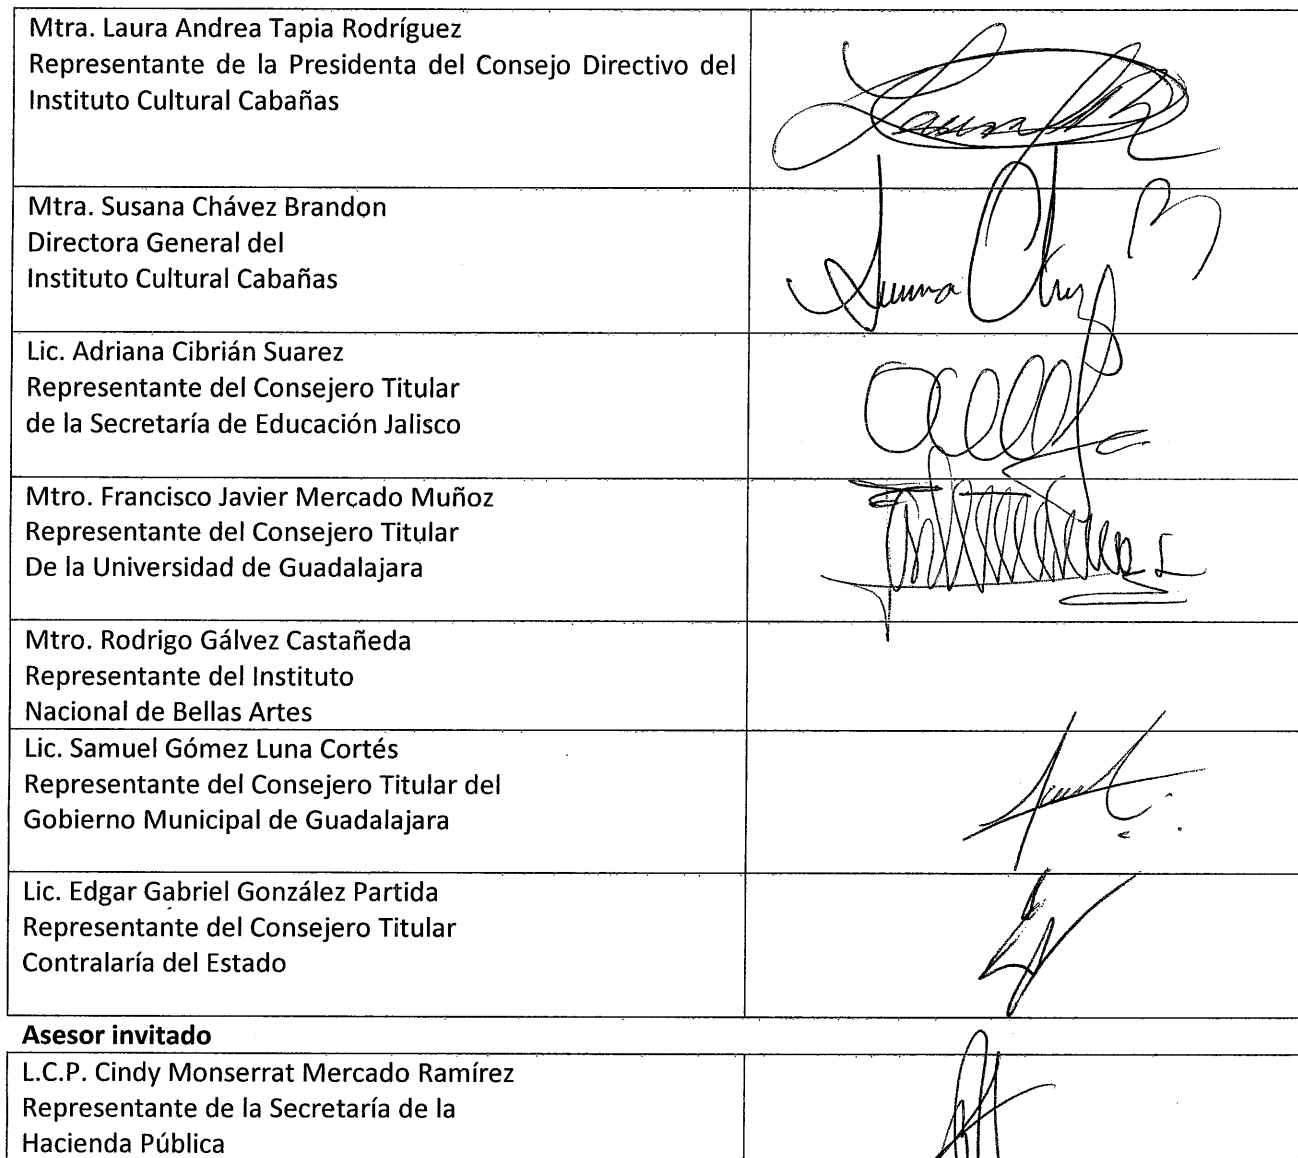 Mtra. Laura Andrea Tapia Rodríguez
Representante de la Presidenta del Consejo Directivo del
Instituto Cultural Cabañas
Mtra. Susana Chávez Brandon
Directora General del
Instituto Cultural Cabañas
Lic. Adriana Cibrián Suarez
Representante del Consejero Titular
de la Secretaría de Educación Jalisco
Mtro. Francisco Javier Mercado Muñoz
Representante del Consejero Titular
De la Universidad de Guadalajara
Mtro. Rodrigo Gálvez Castañeda
Representante del Instituto
Nacional de Bellas Artes
Lic. Samuel Gómez Luna Cortés
Representante del Consejero Titular del
Gobierno Municipal de Guadalajara
Lic. Edgar Gabriel González Partida
Representante del Consejero Titular
Contralaría del Estado
Asesor invitado
L.C.P. Cindy Monserrat Mercado Ramírez
Representante de la Secretaría de la
Hacienda Pública